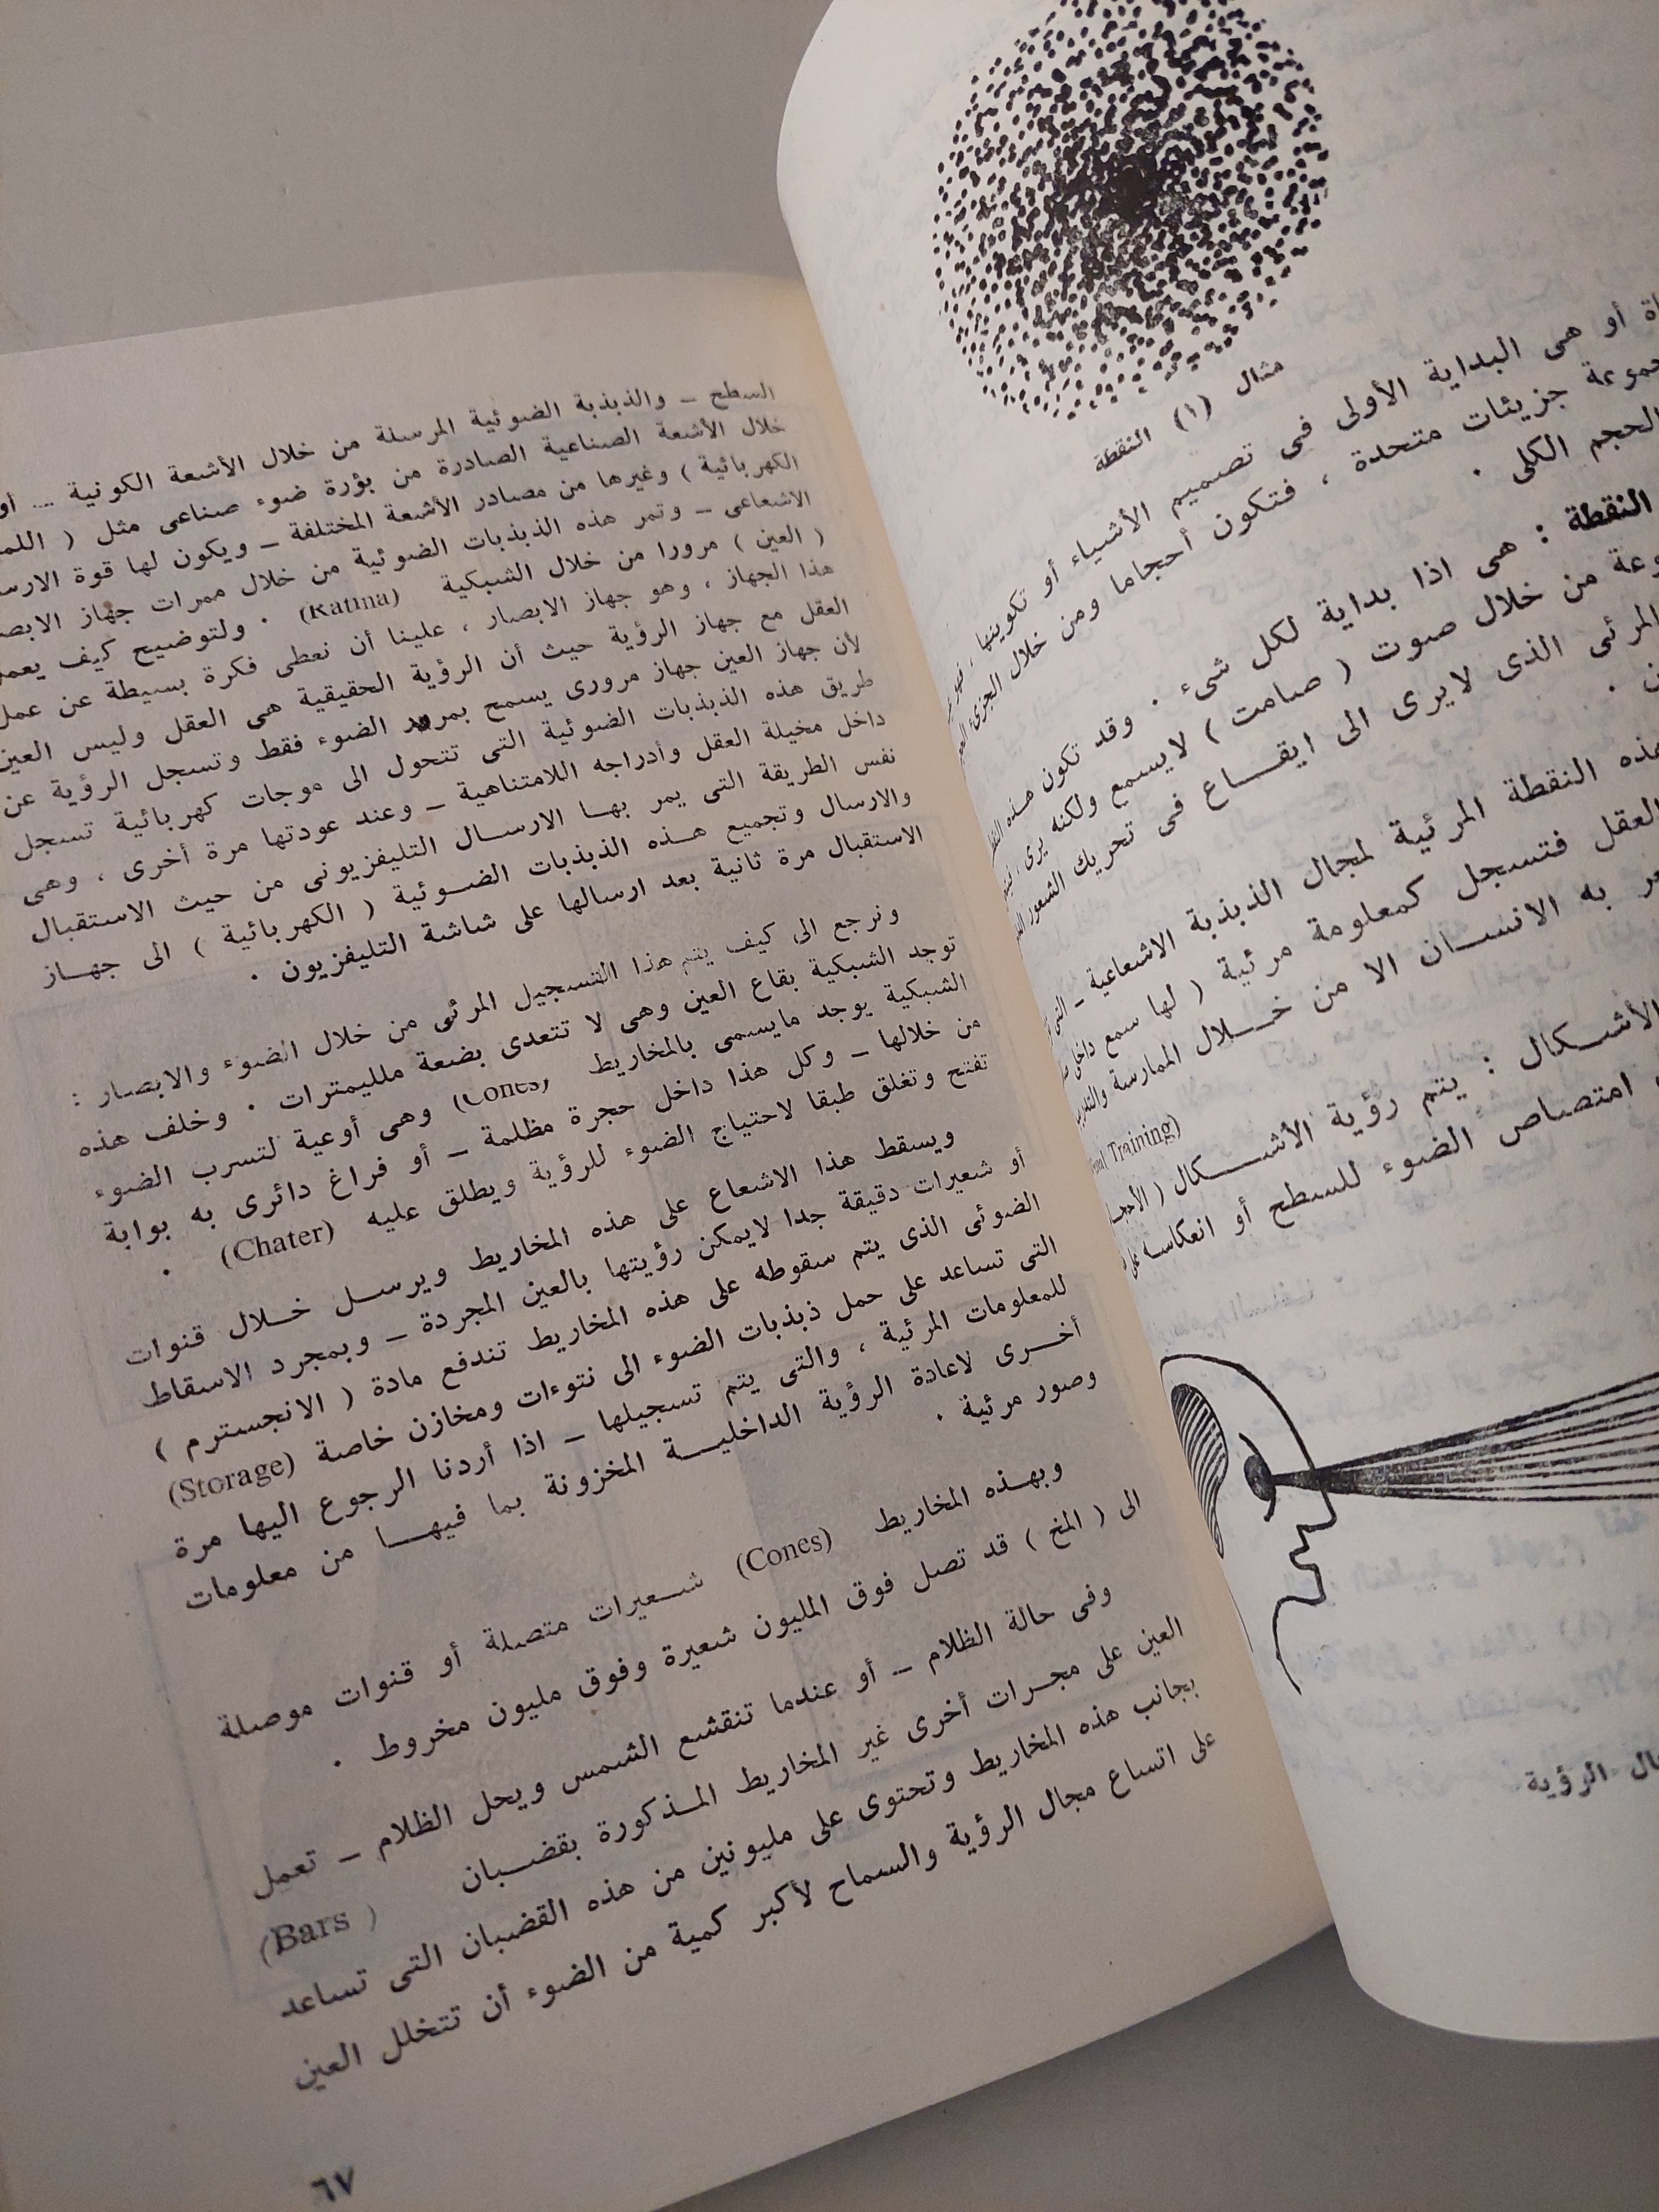 مثال (١) النقطة
أو هى البداية الأولى فى تصميم الأشياء أو تكوينها ،
جزيئات متحدة ، فتكون أحجاما ومن خلال الجزىء
الحجم الكلى .
النقطة : هى اذا بداية لكل شىء . وقد تكون هذه
من خلال صوت ( صامت ) لايسمع ولكنه يرى ،
المرئى الذى لايرى الى ايقـــاع فى تحريك الشعور
النقطة المرئية لمجال الذبذبة الاشعاعية –
العقل فتسجل كمعلومة مرئية ( لها سمع داخلى
به الانســان الا من خـــلال الممارسة
Training)
الأشــكال : يتم رؤية الأشـــكال (
امتصاص الضوء للسطح أو انعكاسه
الرؤية
السطح – والذبذبة الضوئية المرسلة من خلال الأشعة الكونية ... أو
خلال الأشعة الصناعية الصادرة من بؤرة ضوء صناعى مثل (
الكهربائية ) وغيرها من مصادر الأشعة المختلفة – ويكون لها قوة
الاشعاعى – وتمر هذه الذبذبات الضوئية من خلال ممرات جهاز
( العين ) مرورا من خلال الشبكية (Ratina) . ولتوضيح كيف يعمل
هذا الجهاز ، وهو جهاز الابصار ، علينا أن نعطى فكرة بسيطة عن عمل
العقل مع جهاز الرؤية حيث أن الرؤية الحقيقية هى العقل وليس العين
لأن جهاز العين جهاز مرورى يسمح بمرور الضوء فقط وتسجل الرؤية عن
طريق هذه الذبذبات الضوئية التى تتحول الى موجات كهربائية تسجل
داخل مخيلة العقل وأدراجه اللامتناهية – وعند عودتها مرة أخرى ، وهى
نفس الطريقة التى يمر بهــا الارســال التليفزيونى من حيث الاستقبال
والارسال وتجميع هــذه الذبذبات الضــوئية ( الكهربائية ) الى جهــاز
الاستقبال مرة ثانية بعد ارسالها على شاشة التليفزيون .
ونرجع الى كيف يتم هذا التسجيل المرئى من خلال الضوء والابصار :
توجد الشبكية بقاع العين وهى لا تتعدى بضعة ملليمترات . وخلف هذه
الشبكية يوجد مايسمى بالمخاريط (Cones) وهى أوعية لتسرب الضوء
من خلالها – وكل هذا داخل حجرة مظلمة – أو فراغ دائرى به بوابة
تفتح وتغلق طبقا لاحتياج الضوء للرؤية ويطلق عليه (Chater) .
ويسقط هذا الاشعاع على هذه المخاريط ويرســل خــلال قنوات
أو شعيرات دقيقة جدا لايمكن رؤيتها بالعين المجردة – وبمجرد الاسقاط
الضوئى الذى يتم سقوطه على هذه المخاريط تندفع مادة ( الانجسترم )
التى تساعد على حمل ذبذبات الضوء الى نتوءات ومخازن خاصة (Storage)
للمعلومات المرئية ، والتى يتم تسجيلها – اذا أردنا الرجوع اليها مرة
أخــرى لاعادة الرؤية الداخليــــة المخزونة بما فيهـــا من معلومات
وصور مرئية .
وبهــذه المخاريط (Cones) شــعيرات متصلة أو قنوات موصلة
الى ( المخ ) قد تصل فوق المليون شعيرة وفوق مليون مخروط .
وفى حالة الظلام – أو عندما تنقشع الشمس ويحل الظلام – تعمل
العين على مجــرات أخرى غير المخاريط المــذكورة بقضــبان (Bars )
بجانب هذه المخاريط وتحتوى على مليونين من هذه القضبان التى تساعد
على اتساع مجال الرؤية والسماح لأكبر كمية من الضوء أن تتخلل العين
٦٧